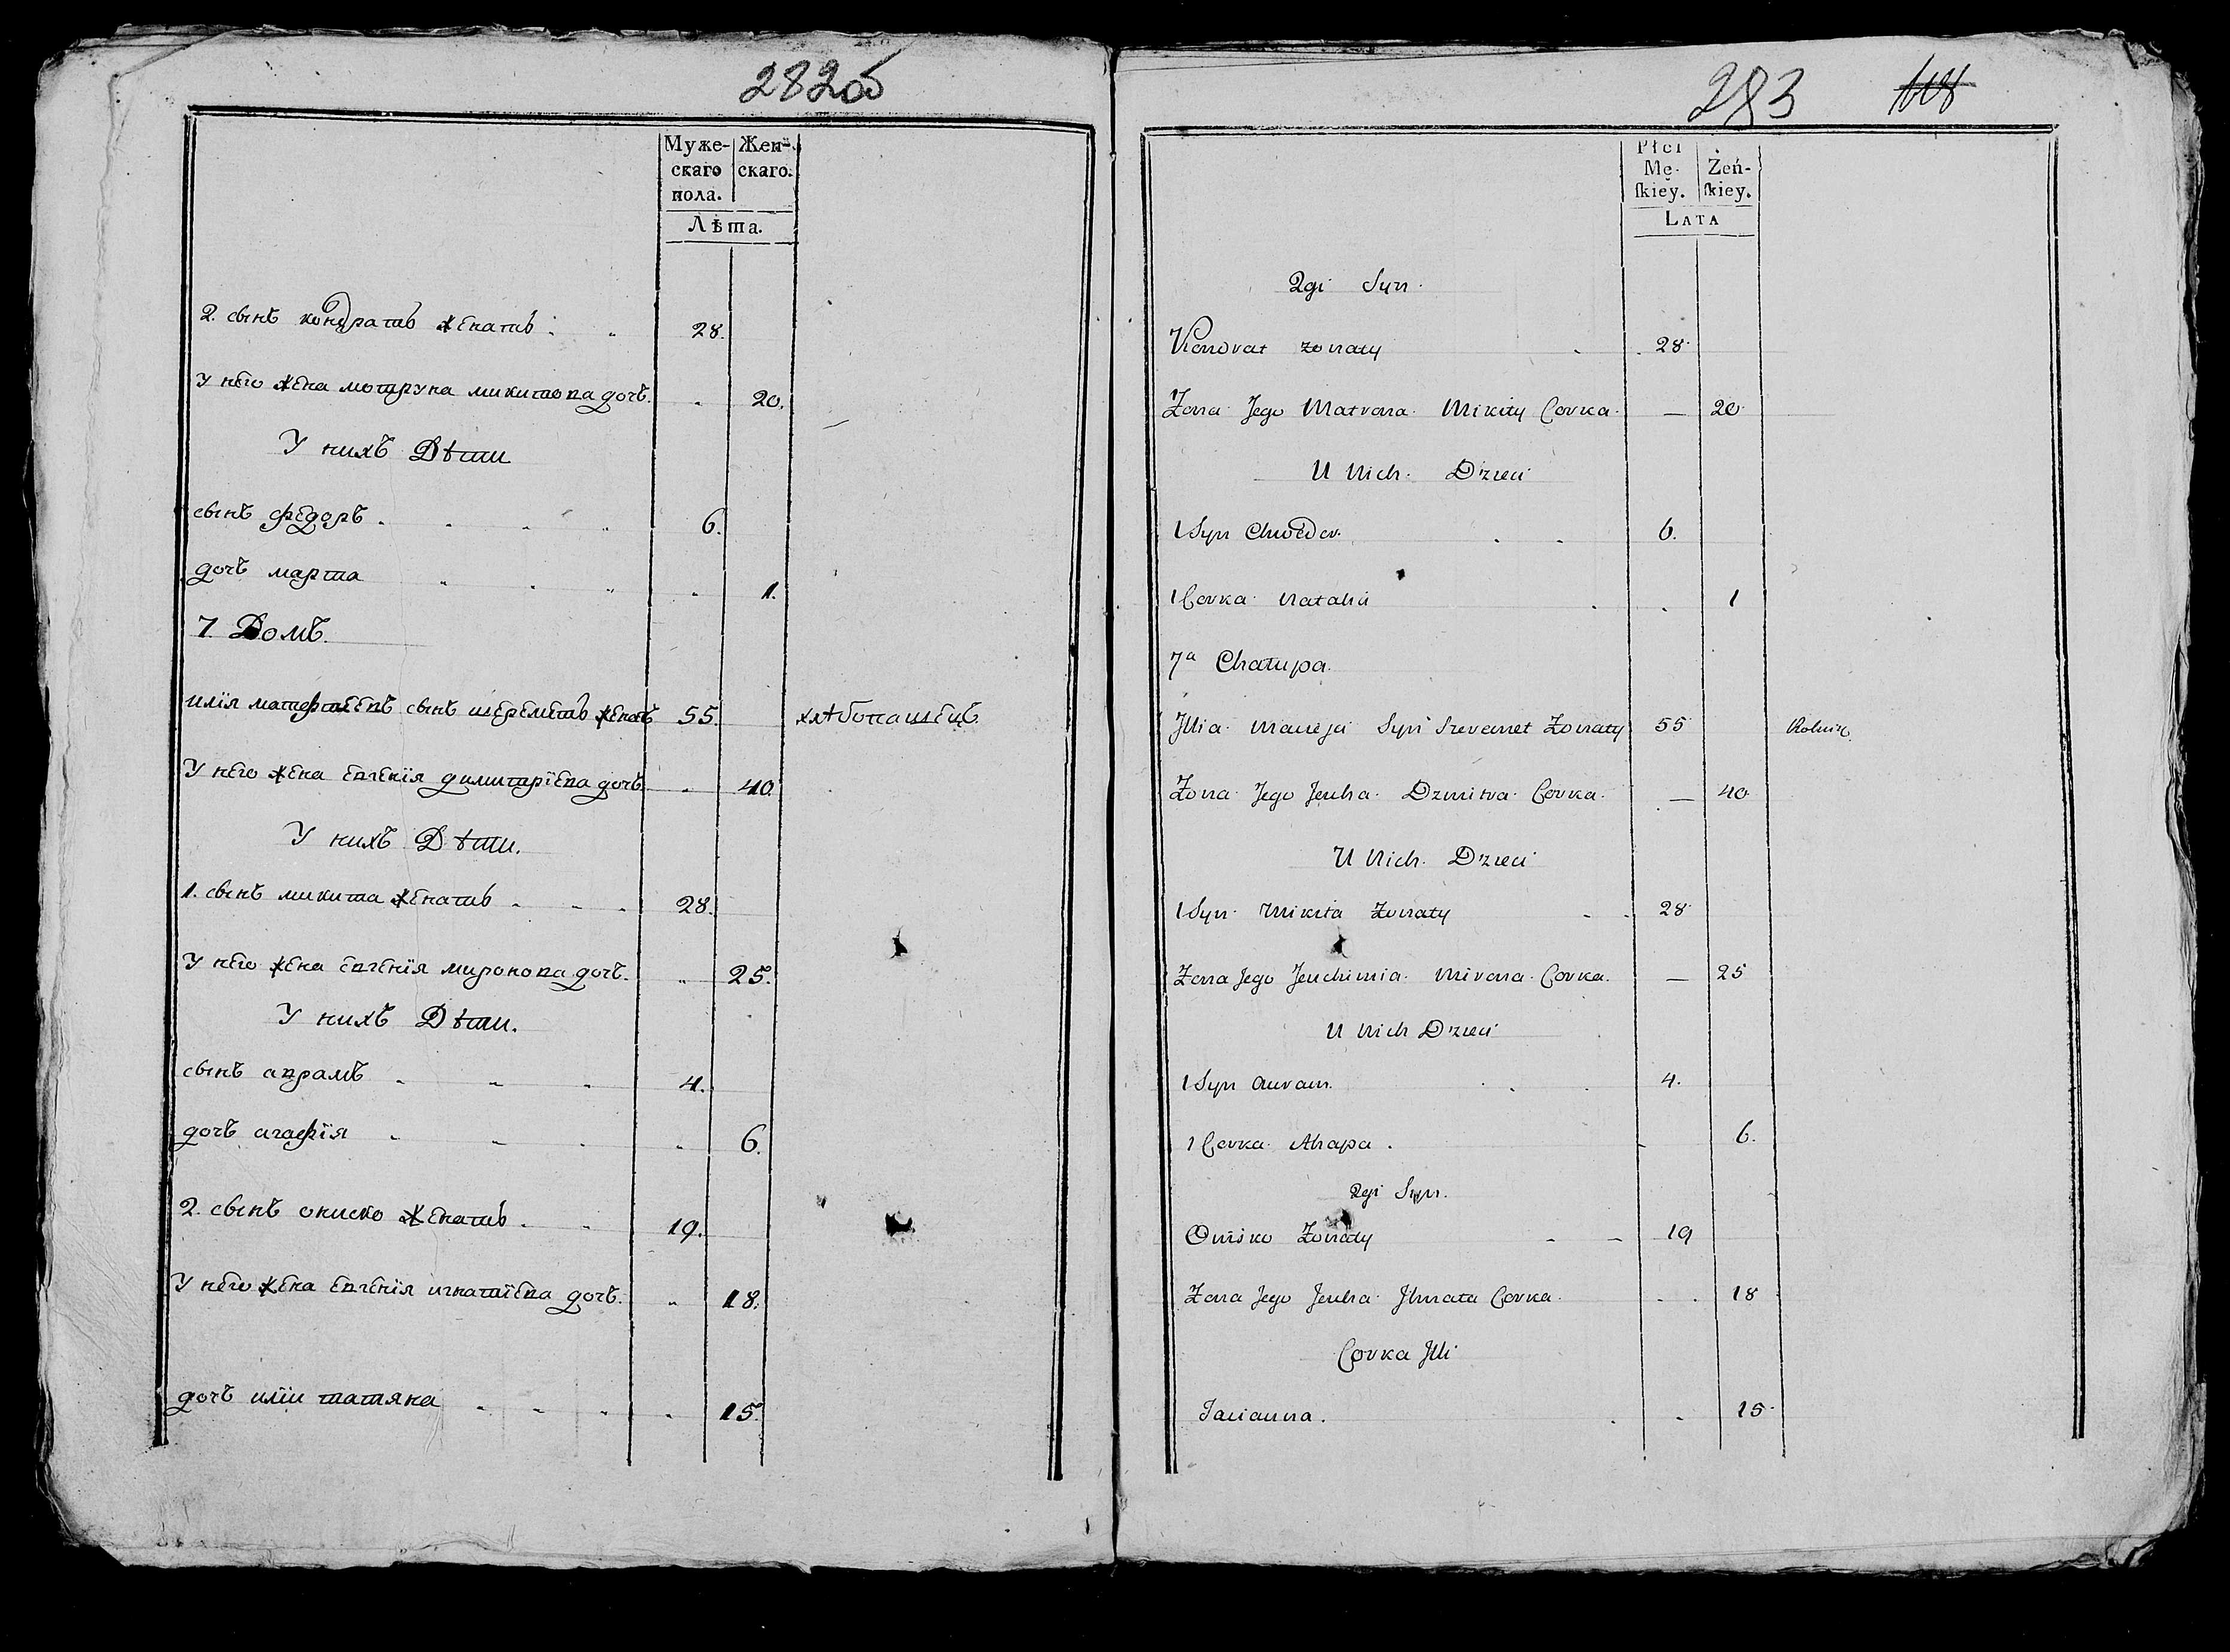 282об
Муже-
скаго
пола.
Жен-
скаго.
Лѣта.
2. сынъ кондратъ женатъ . . 28.
у него жена мотруна микитова дочъ. . 20.
У нихъ Дѣти
сынъ федоръ . . . . 6.
дочъ марта . . . . 1.
7. Домъ.
илїя матфѣевъ сынъ шереметъ женатъ 55. хлѣбопашецъ
У него жена евгенїя димитрїева дочъ . 40.
У нихъ Дѣти.
1. сынъ микита женатъ . . . 28.
У него жена евгенїя миронова дочъ. . 25.
У нихъ Дѣти.
сынъ аврамъ . . . 4.
дочъ агафїя . . . . 6.
2. сынъ ониско женатъ . . 19.
У него жена евгенїя игнатїева дочъ. . 18.
дочъ илїи татяна . . . . 15.
283 118
Płci
Mę-
ſkiey.
Żeń-
ſkiey.
LATA
2gi Syn.
Kondrat zonaty . . 28.
Zona Jego Matrona Mikity Corka. — 20.
U Nich Dzieci
1 Syn Chwedor. . . 6.
1 Corka Natalia . . 1
7a Chałupa.
Jllia Macieja Syn Szeremet Zonaty 55 Rolnik
Zona Jego Jeuha Dzmitra Corka. — 40
U Nich Dzieci
1 Syn Mikita Zonaty . . 28
Zona Jego Jeuchimia Mirona Corka. — 25
U Nich Dzieci
1 Syn Auram. . . 4.
1 Corka Ahapa . . 6.
2gi Syn.
Onisko Zonaty — — 19
Zona Jego Jeuha Jhnata Corka . . 18
Corka Jlli
Tacianna . . . 15.